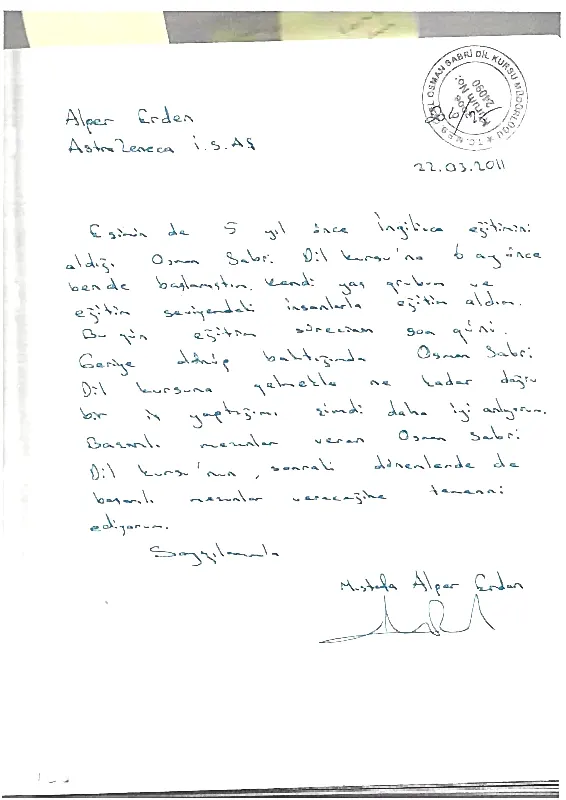 ÖZEL OSMAN SABRİ DİL KURSU MÜDÜRLÜĞÜ ★ T.C. M.E.B
Kurum No:
24090
Alper Erden
AstraZeneca İ.S.AŞ
22.03.2011
Eşimin de 5 yıl önce İngilizce eğitimini
aldığı Osman Sabri Dil kursu'na 6 ay önce
bende başlamıştım. Kendi yaş grubum ve
eğitim seviyemdeki insanlarla eğitim aldım.
Bu gün eğitim sürecimin son günü.
Geriye dönüp baktığımda Osman Sabri
Dil kursuna gelmekle ne kadar doğru
bir iş yaptığımı şimdi daha iyi anlıyorum.
Başarılı mezunlar veren Osman Sabri
Dil kursu'nun, sonraki dönemlerde de
başarılı mezunlar vereceğine temenni
ediyorum.
Saygılarımla
Mustafa Alper Erden